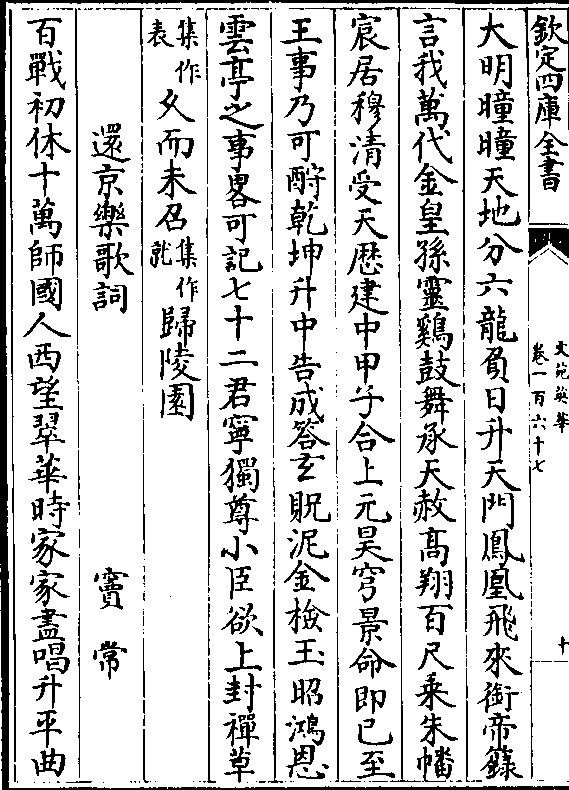 欽定四庫全書
文苑英華
卷一百六十七
十
大明曈曈天地分六龍負日升天門鳳凰飛來銜帝籙
言我萬代金皇孫靈鷄鼓舞承天赦高翔百尺乗朱幡
宸居穆清受天厯建中甲子合上元昊穹景命即已至
王事乃可酧乾坤升中告成答玄貺泥金檢玉昭鴻恩
雲亭之事畧可記七十二君寧獨尊小臣欲上封禪草
集作表久而未召集作就歸陵園
還京樂歌詞 竇常
百戰初休十萬師國人西望翠華時家家盡唱升平曲